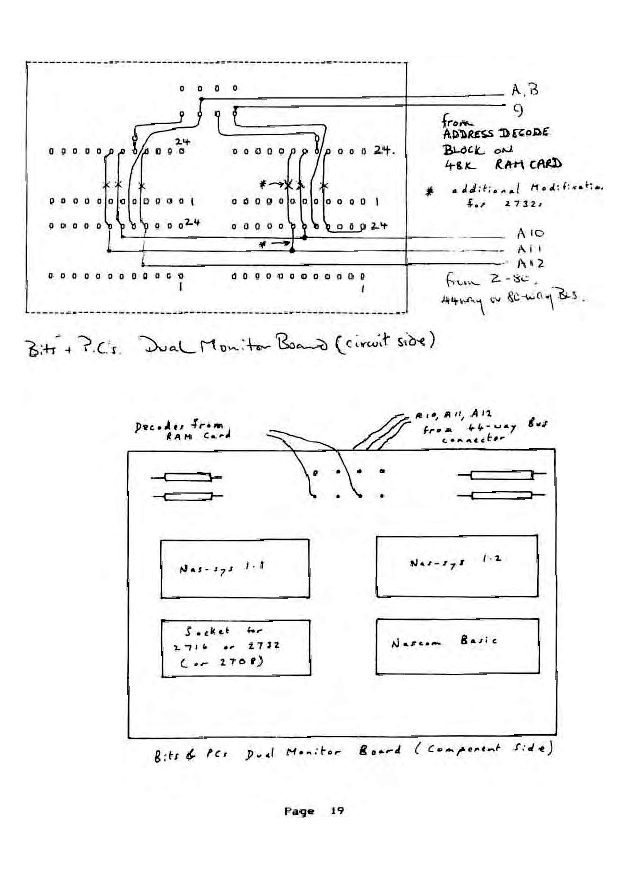 A,B
9
from
ADDRESS DECODE
BLOCK ON
48K RAM CARD
* additional Modification
for 2732s
24
24.
*
1
1
24
24
*
A10
A11
A12
from Z-80
44way or 80-way Bus.
1
1
Bits + P.C.'s. Dual Monitor Board (circuit side)
Decodes from
RAM Card
A10, A11, A12
from 44-way Bus
connector
Nas-sys 1.1
Nas-sys 1.2
Socket for
2716 or 2732
(or 2708)
Nascom Basic
Bits & PCs Dual Monitor Board (Component Side)
Page 19